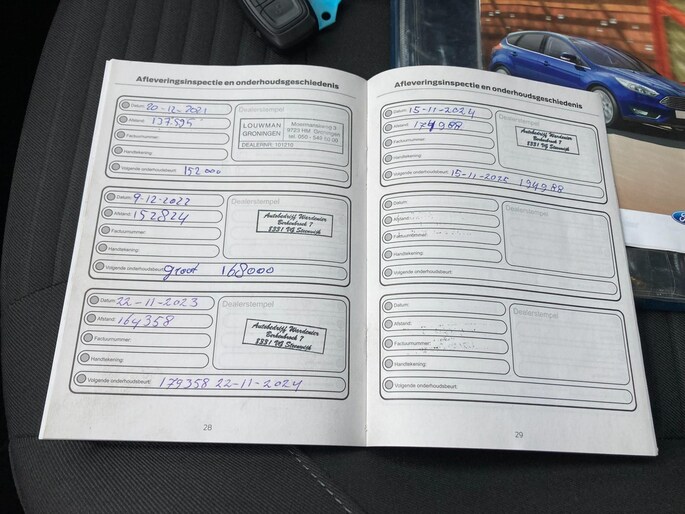 Afleveringsinspectie en onderhoudsgeschiedenis
Datum: 20-12-2021
Afstand: 137595
Factuurnummer:
Handtekening:
Volgende onderhoudsbeurt: 152000
Dealerstempel
LOUWMAN
GRONINGEN
Mosmansweg 3
9723 HM Groningen
DEALERNR. 101210
Datum: 9-12-2022
Afstand: 152824
Factuurnummer:
Handtekening:
Volgende onderhoudsbeurt: groot 168000
Dealerstempel
Autobedrijf Wardenier
Berkenbroek 7
8331 VG Steenwijk
Datum: 22-11-2023
Afstand: 164358
Factuurnummer:
Handtekening:
Volgende onderhoudsbeurt: 179358 22-11-2024
Dealerstempel
Autobedrijf Wardenier
Berkenbroek 7
8331 VG Steenwijk
28
Afleveringsinspectie en onderhoudsgeschiedenis
Datum: 15-11-2024
Afstand: 174988
Factuurnummer:
Handtekening:
Volgende onderhoudsbeurt: 15-11-2025 194988
Dealerstempel
Autobedrijf Wardenier
Berkenbroek 7
8331 VG Steenwijk
Datum:
Afstand:
Factuurnummer:
Handtekening:
Volgende onderhoudsbeurt:
Dealerstempel
Datum:
Afstand:
Factuurnummer:
Handtekening:
Volgende onderhoudsbeurt:
Dealerstempel
29